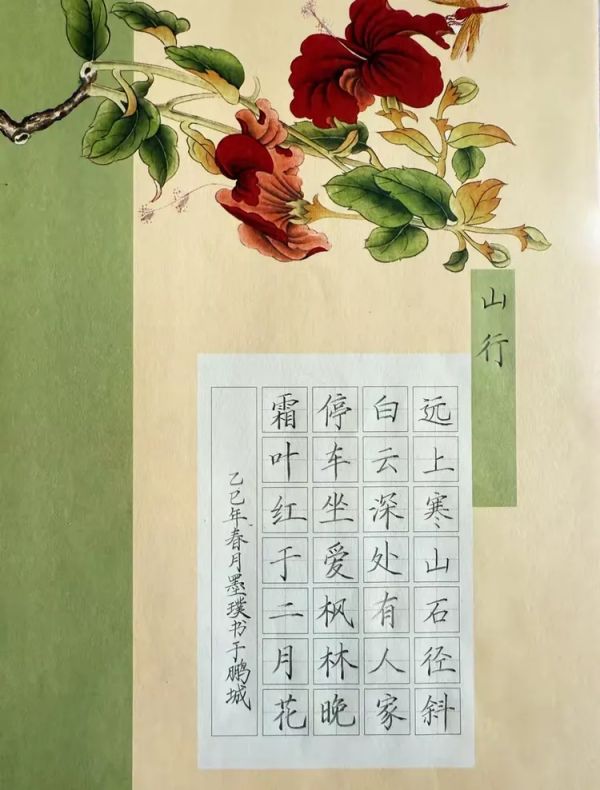 山行
远上寒山石径斜
白云深处有人家
停车坐爱枫林晚
霜叶红于二月花
乙巳年春月墨璞书于鹏城